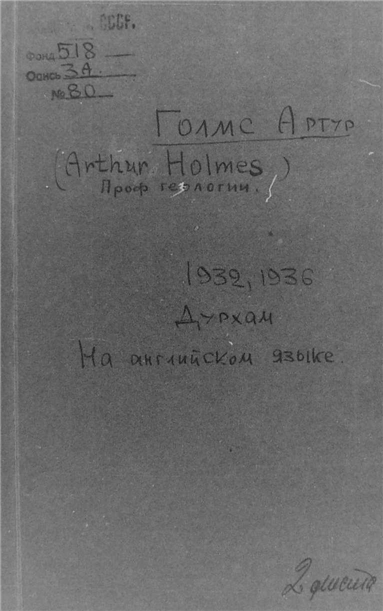 СССР.
Фонд 518
Опись 3А.
№ 80
Голмс Артур
(Arthur Holmes)
Проф геологии.
1932, 1936
Дурхам
На английском языке.
2 листа